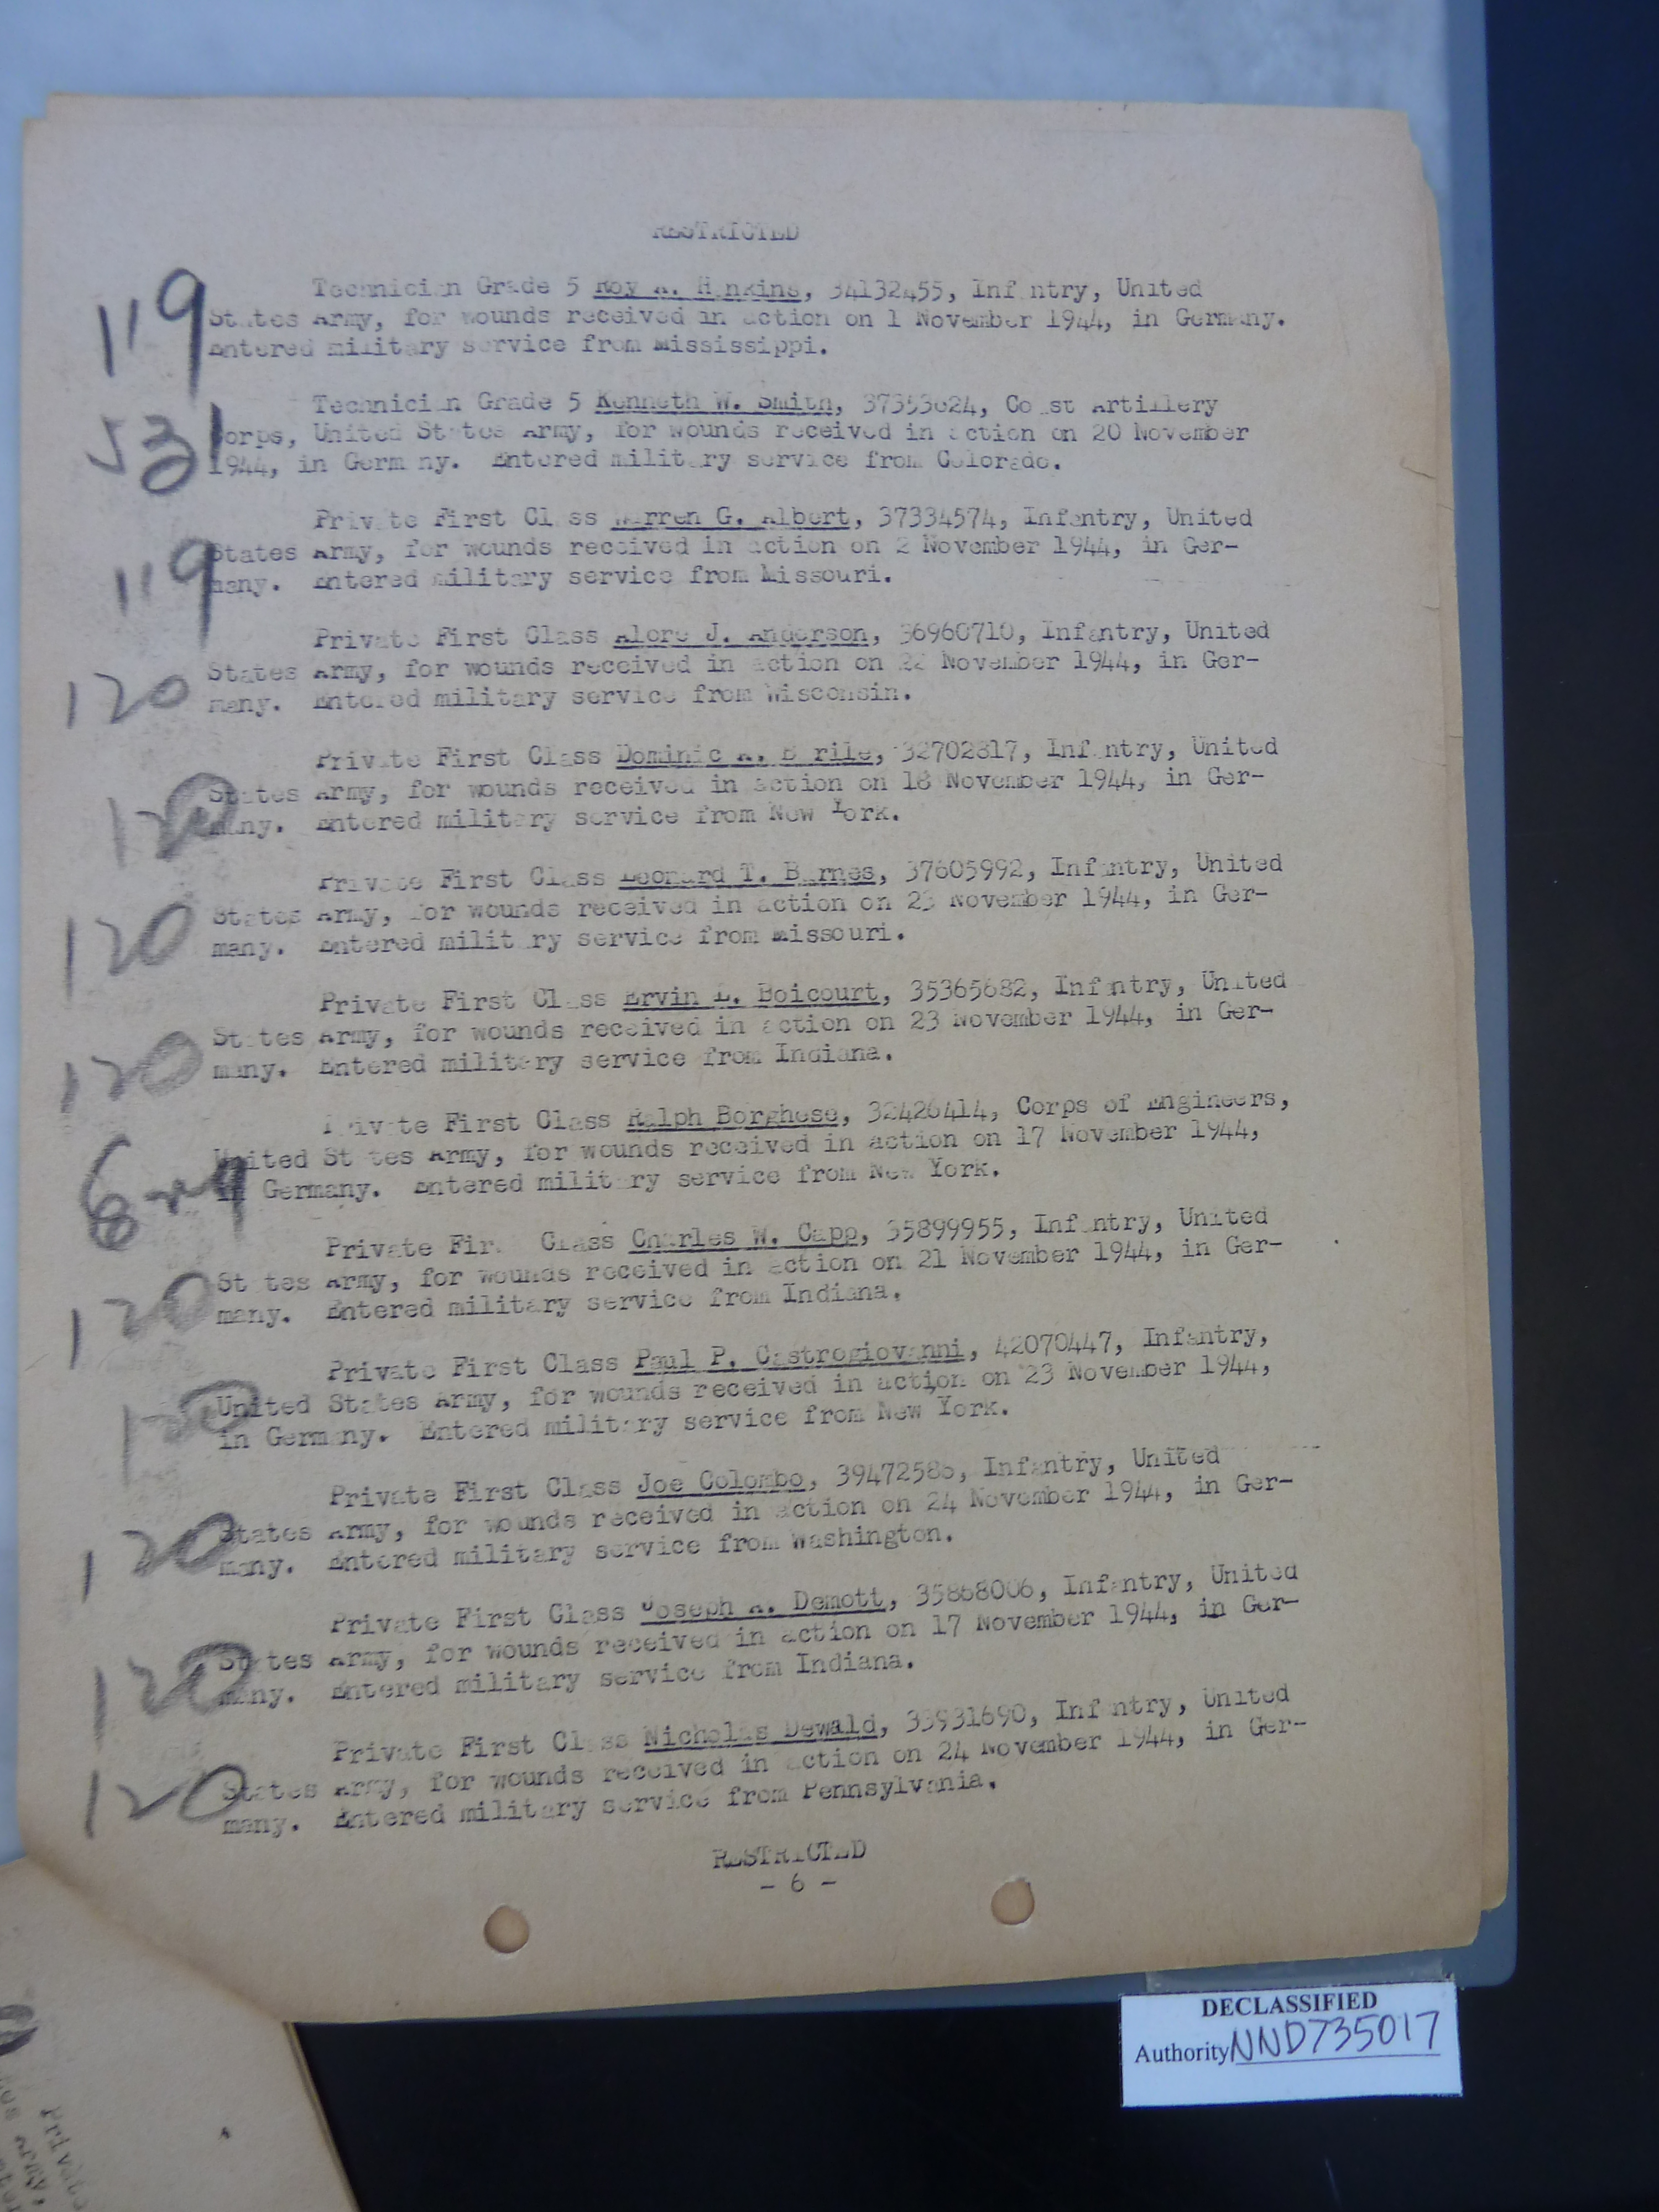 RESTRICTED
119
Technician Grade 5 Roy A. Hankins, 34132455, Infantry, United
States Army, for wounds received in action on 1 November 1944, in Germany.
Entered military service from Mississippi.
531
Technician Grade 5 Kenneth W. Smith, Coast Artillery
Corps, United States Army, for wounds received in action on 20 November
1944, in Germany. Entered military service from Colorado.
119
Private First Class Warren G. Albert, 37334574, Infantry, United
States Army, for wounds received in action on 2 November 1944, in Ger-
many. Entered military service from Missouri.
120
Private First Class Alore J. Anderson, 36960710, Infantry, United
States Army, for wounds received in action on 22 November 1944, in Ger-
many. Entered military service from Wisconsin.
120
Private First Class Dominic A. Barile, 32702817, Infantry, United
States Army, for wounds received in action on 18 November 1944, in Ger-
many. Entered military service from New York.
120
Private First Class Leonard T. Barnes, 37605992, Infantry, United
States Army, for wounds received in action on 23 November 1944, in Ger-
many. Entered military service from Missouri.
120
Private First Class Ervin L. Boicourt, 35365682, Infantry, United
States Army, for wounds received in action on 23 November 1944, in Ger-
many. Entered military service from Indiana.
Private First Class Ralph Borghese, 32426414, Corps of Engineers,
United States Army, for wounds received in action on 17 November 1944,
in Germany. Entered military service from New York.
120
Private First Class Charles W. Capp, 35899955, Infantry, United
States Army, for wounds received in action on 21 November 1944, in Ger-
many. Entered military service from Indiana.
120
Private First Class Paul P. Castrogiovanni, 42070447, Infantry,
United States Army, for wounds received in action on 23 November 1944,
in Germany. Entered military service from New York.
120
Private First Class Joe Colombo, Infantry, United
States Army, for wounds received in action on 24 November 1944, in Ger-
many. Entered military service from Washington.
120
Private First Class Joseph A. Demott, 35868006, Infantry, United
States Army, for wounds received in action on 17 November 1944, in Ger-
many. Entered military service from Indiana.
120
Private First Class Nicholas Dewald, 33931690, Infantry, United
States Army, for wounds received in action on 24 November 1944, in Ger-
many. Entered military service from Pennsylvania.
RESTRICTED
- 6 -
DECLASSIFIED
Authority NND735017